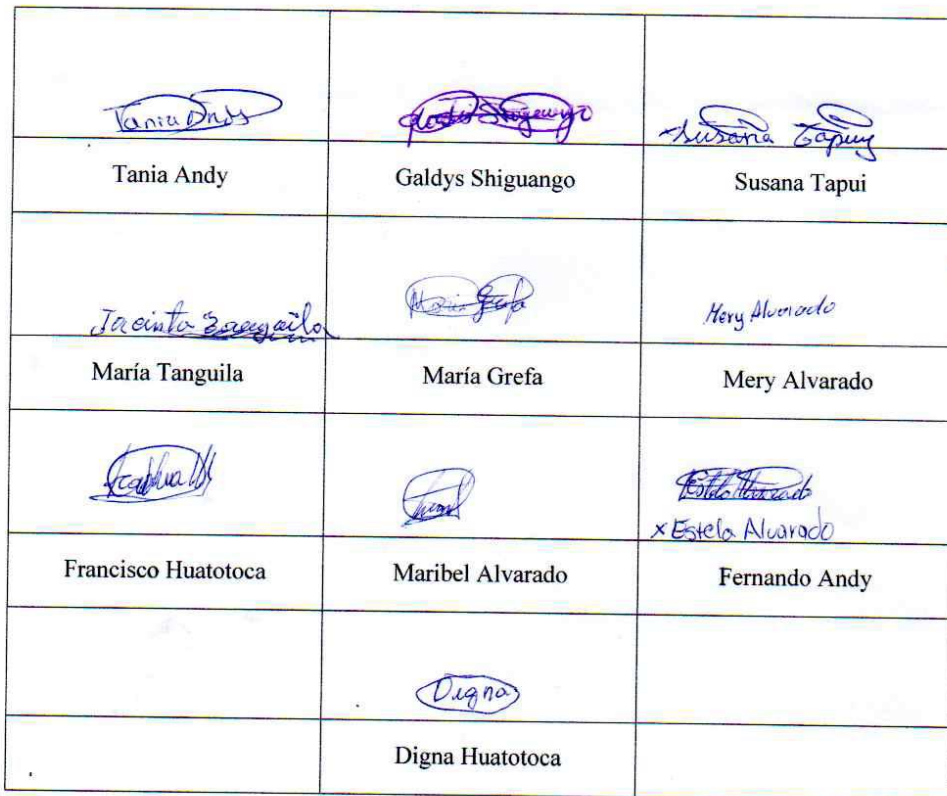 Tania Andy
Susana Tapuy
Tania Andy
Galdys Shiguango
Susana Tapui
Jacinta Tanguila
María Grefa
Mery Alvarado
María Tanguila
María Grefa
Mery Alvarado
Estela Alvarado
x Estela Alvarado
Francisco Huatotoca
Maribel Alvarado
Fernando Andy
Digna
Digna Huatotoca